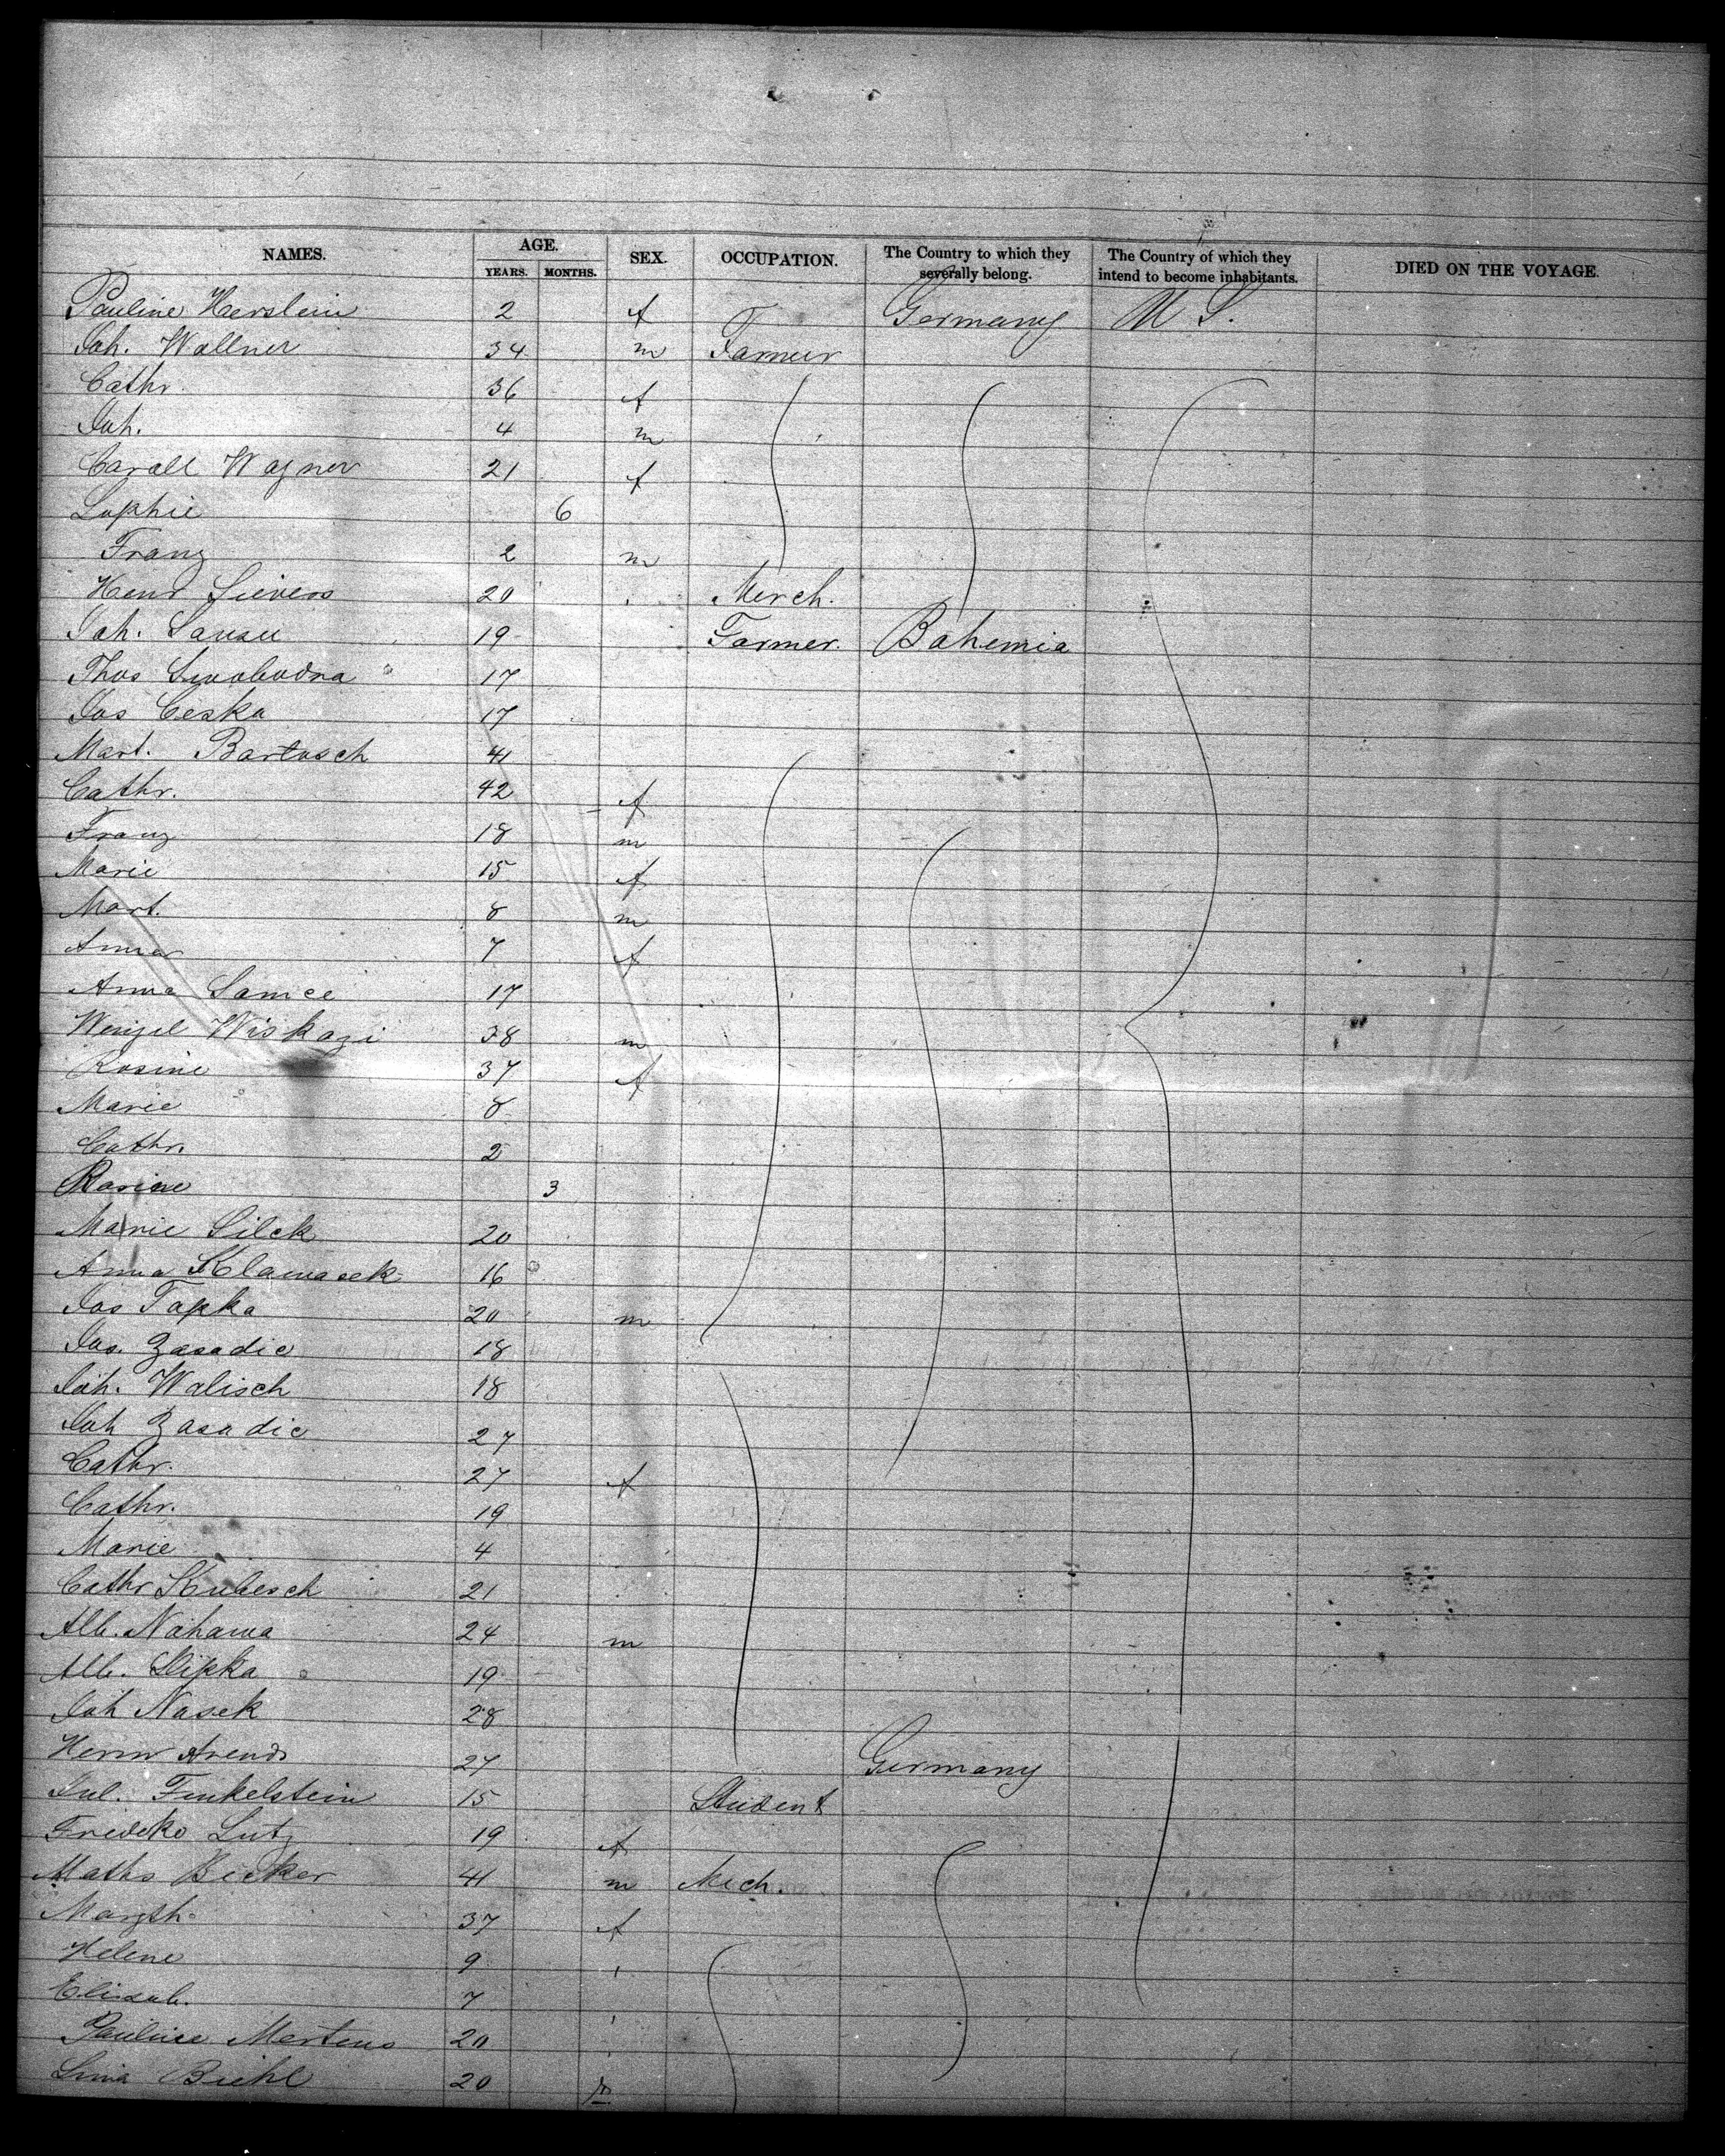 NAMES. AGE. SEX. OCCUPATION. The Country to which they severally belong. The Country of which they intend to become inhabitants. DIED ON THE VOYAGE.
YEARS. MONTHS.
Pauline Herslein 2 f Germany U S.
Joh. Wallner 34 m Farmer
Cathr. 36 f
Joh. 4 m
Caroll Wagner 21 f
Sophie 6
Franz 2 m
Henr Sievers 20 Merch.
Joh. 19 Farmer. Bohemia
Thos Swobodna 17
Jos Ceska 17
Mart. Bartosch 41
Cathr. 42 f
Franz 18 m
Marie 15 f
Mart. 8 m
Anna 7 f
Anna Samee 17
Wenzel Wiskazi 38 m
Rosine 37 f
Marie 8
Cathr. 2
Rosine 3
Marie Silek 20
Anna Klamasek 16
Jos Tapka 20 m
Jos. Zasadie 18
Joh. Walisch 18
Joh Zasadie 27
Cathr. 27 f
Cathr. 19
Marie 4
Cathr Kubesch 21
Alb. Nahama 24 m
Alb. 19
Joh Nasek 28
Herm Arends 27 Germany
Jul. Finkelstein 15 Student
Fredeke Lutz 19 f
Maths Becker 41 m Mech.
Margth. 37 f
Helene 9
Elisab. 7
Pauline Mertens 20
Lina Biehl 20